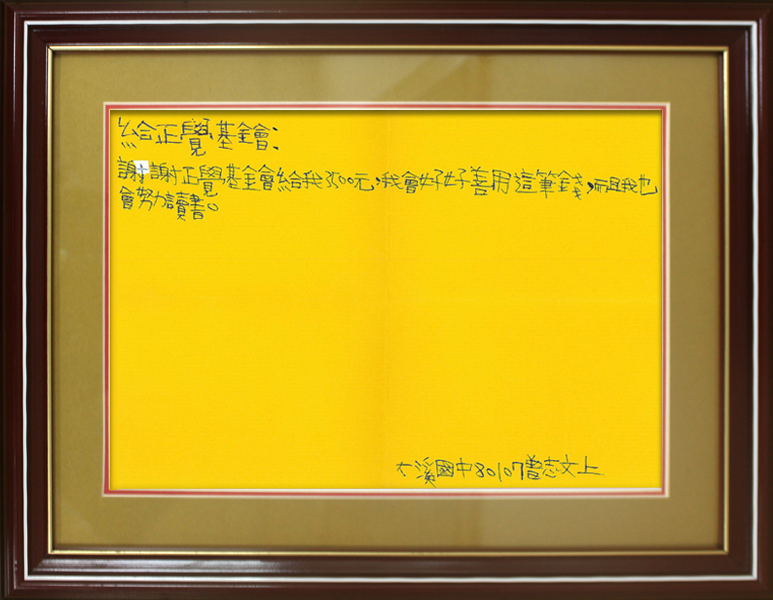 給正覺基金會:
謝謝正覺基金會給我3500元,我會好好善用這筆錢,而且我也
會努力讀書。
大溪國中80107曾志文上